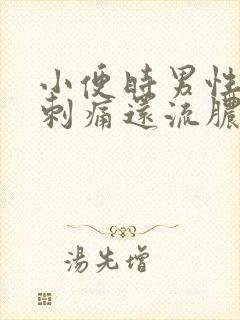 小便時男性
刺痛還流膿
湯先增